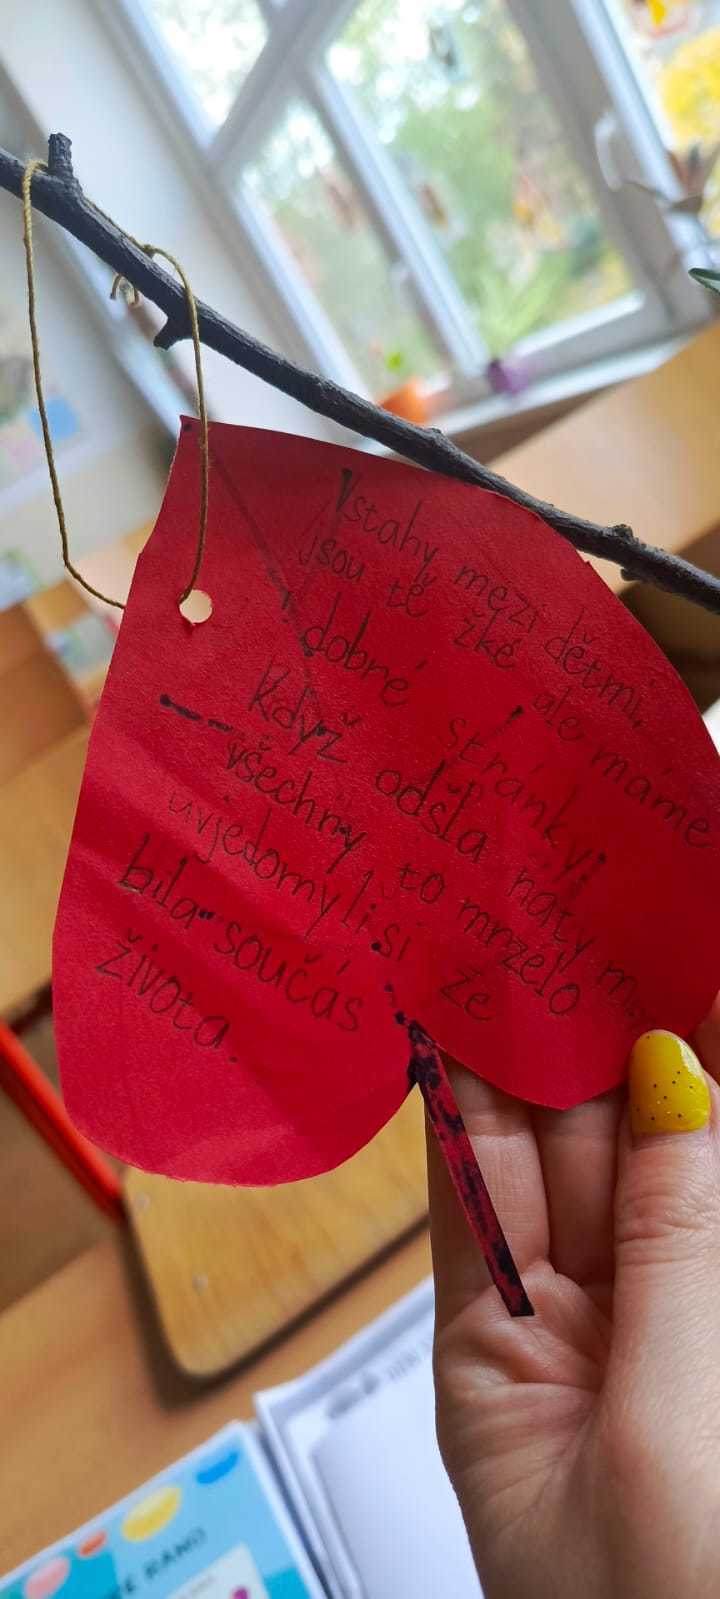 Vstahy mezi dětmi,
jsou tě žké ale máme
i dobré stránky!
Když odšla naty
všechny to mrzelo
uvjedomyli si že
bila součás
života.
RÁNO